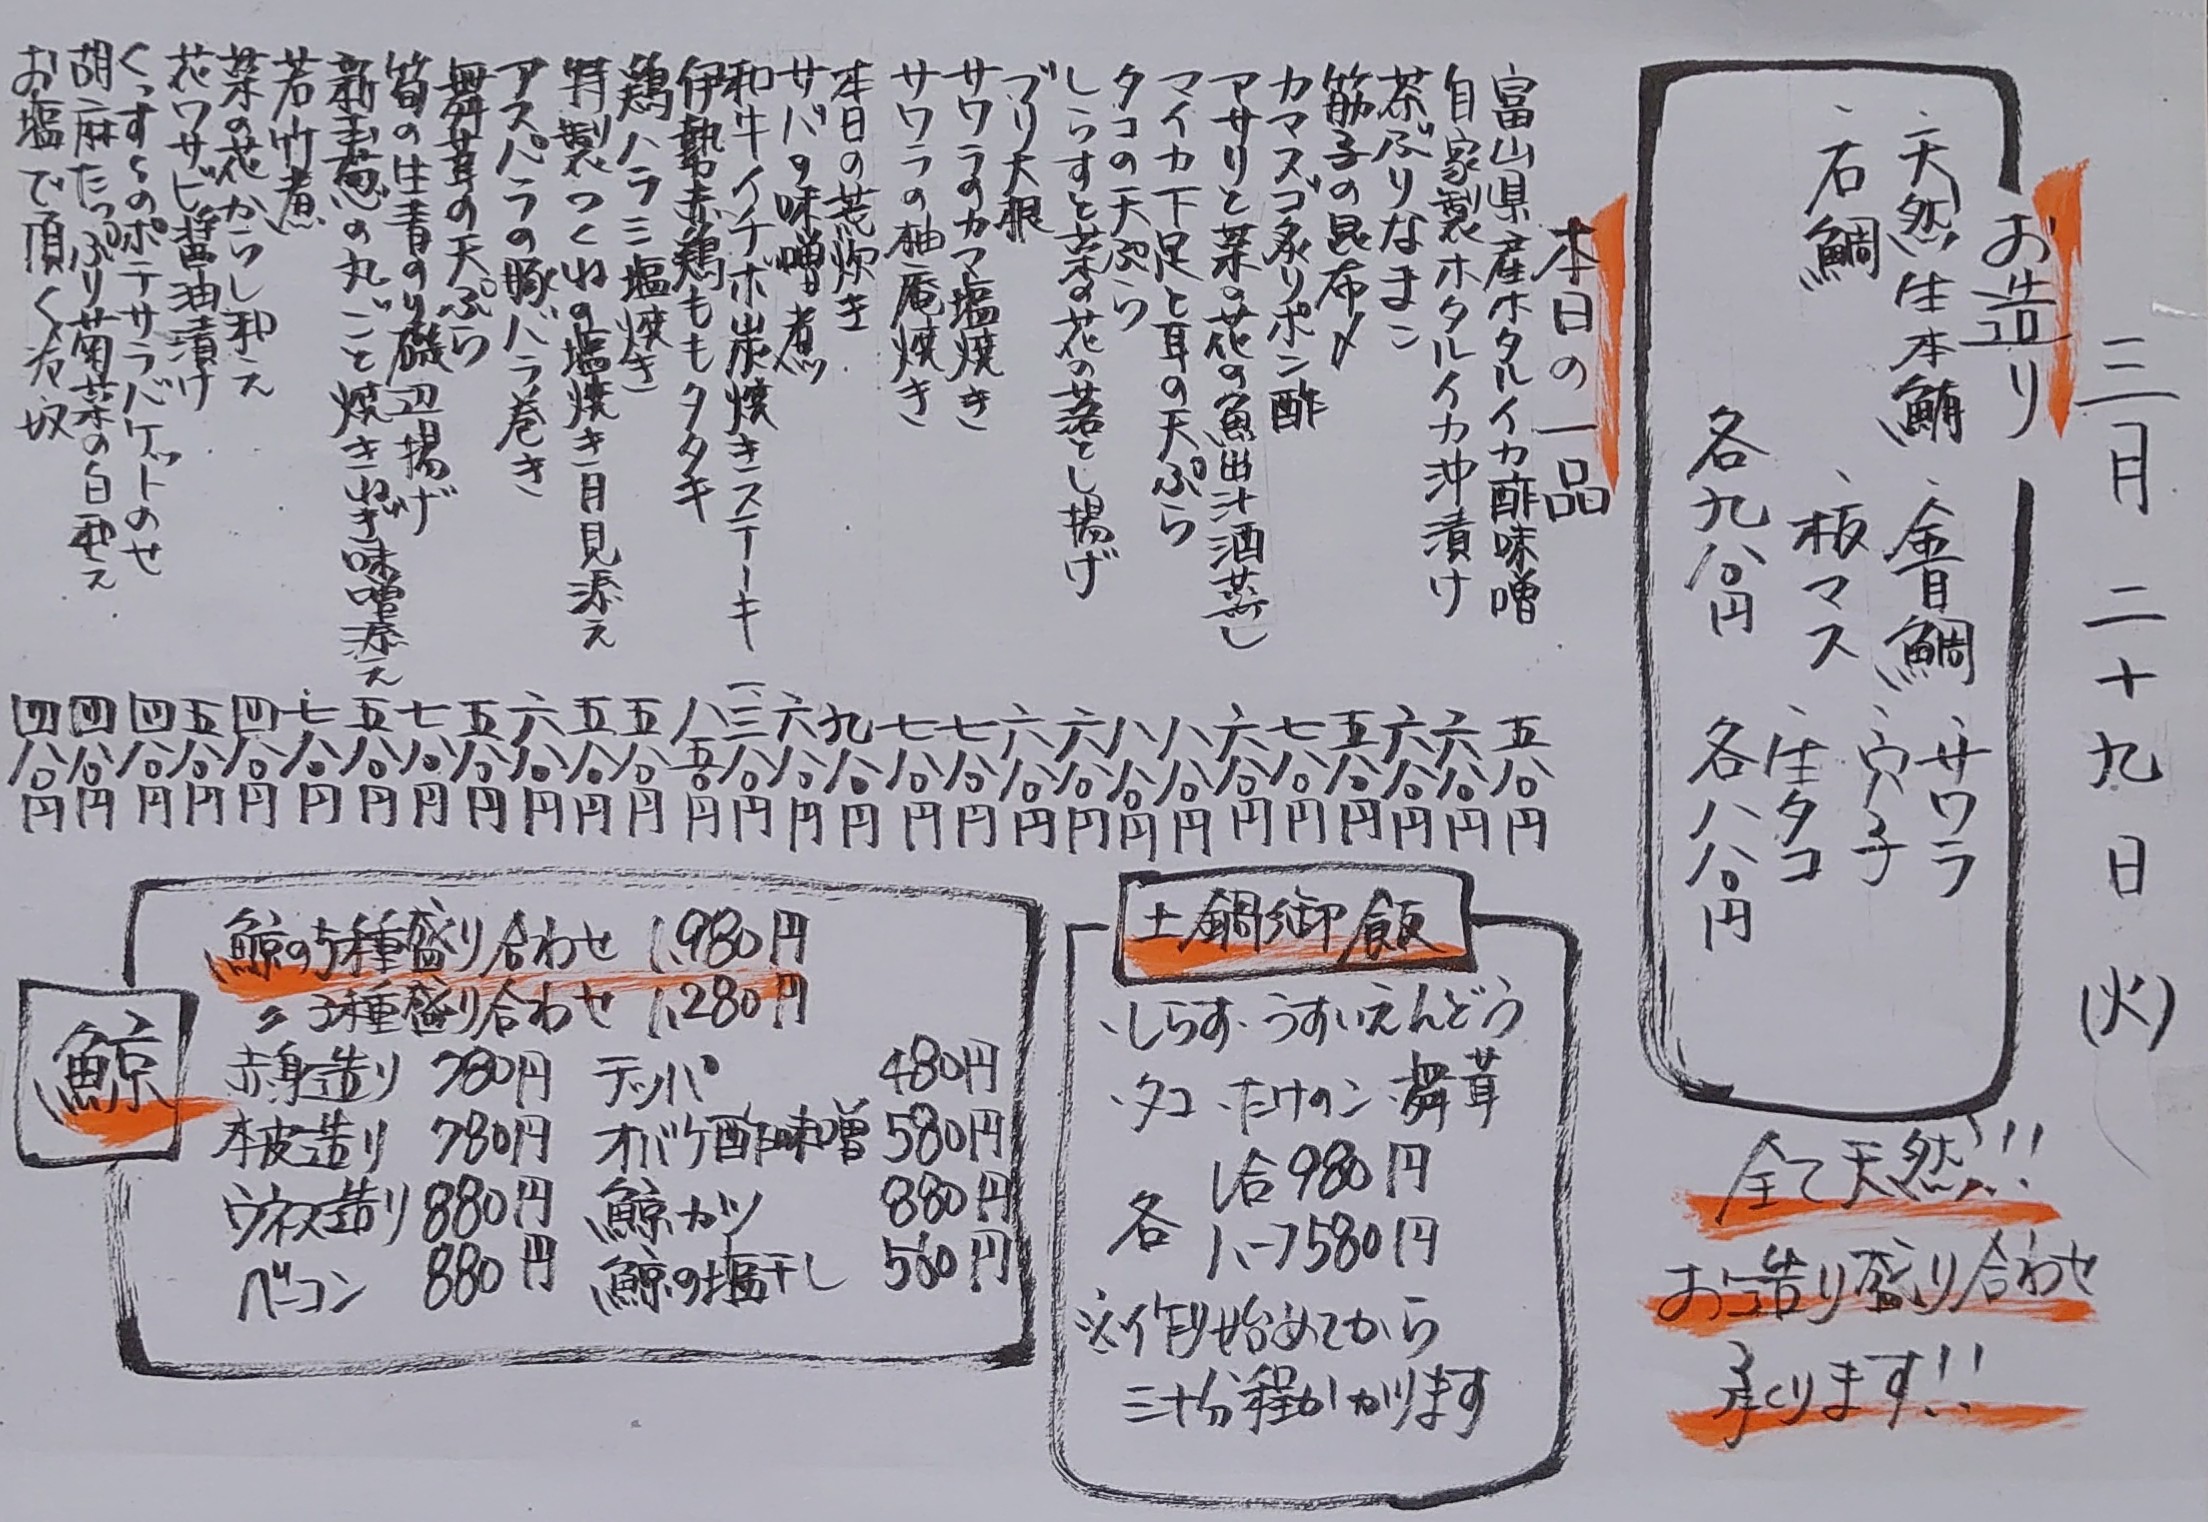 三月二十九日(火)
お造り
、天然生本鮪 、金目鯛 、サワラ
、石鯛 、板マス 、穴子
、生タコ
各九八〇円 各八八〇円
全て天然!!
お造り盛り合わせ
承ります!!
本日の一品
富山県産ホタルイカ酢味噌 五八〇円
自家製ホタルイカ沖漬け 六八〇円
茶ぶりなまこ 六八〇円
筋子の昆布〆 五八〇円
カマスゴ炙りポン酢 七八〇円
アサリと菜の花の魚出汁酒蒸し 六八〇円
マイカ下足と耳の天ぷら 八八〇円
タコの天ぷら 八八〇円
しらすと菜の花の落とし揚げ 六八〇円
ブリ大根 六八〇円
サワラのカマ塩焼き 七八〇円
サワラの柚庵焼き 七八〇円
本日の荒炊き 九八〇円
サバの味噌煮 六八〇円
和牛イチボ炭焼きステーキ 一、三八〇円
伊勢赤鶏ももタタキ 八五〇円
鶏ハラミ塩焼き 五八〇円
特製つくねの塩焼き月見添え 五八〇円
アスパラの豚バラ巻き 六八〇円
舞茸の天ぷら 五八〇円
筍の生青のり磯辺揚げ 七八〇円
新玉葱の丸ごと焼きねぎ味噌添え 五八〇円
若竹煮 七八〇円
菜の花からし和え 四八〇円
花ワサビ醤油漬け 五八〇円
くっすぅのポテサラバケットのせ 四八〇円
胡麻たっぷり菊菜の白和え 四八〇円
お塩で頂く冷奴 四八〇円
土鍋御飯
、しらす、うすいえんどう
、タコ、たけのこ、舞茸
各 1合980円
ハーフ580円
※作り始めてから
三十分程かかります
鯨
鯨の5種盛り合わせ 1,980円
〃 3種盛り合わせ 1,280円
赤身造り 780円 テッパ 480円
本皮造り 780円 オバケ酢味噌 580円
ウネス造り 880円 鯨カツ 880円
ベーコン 880円 鯨の塩干し 560円